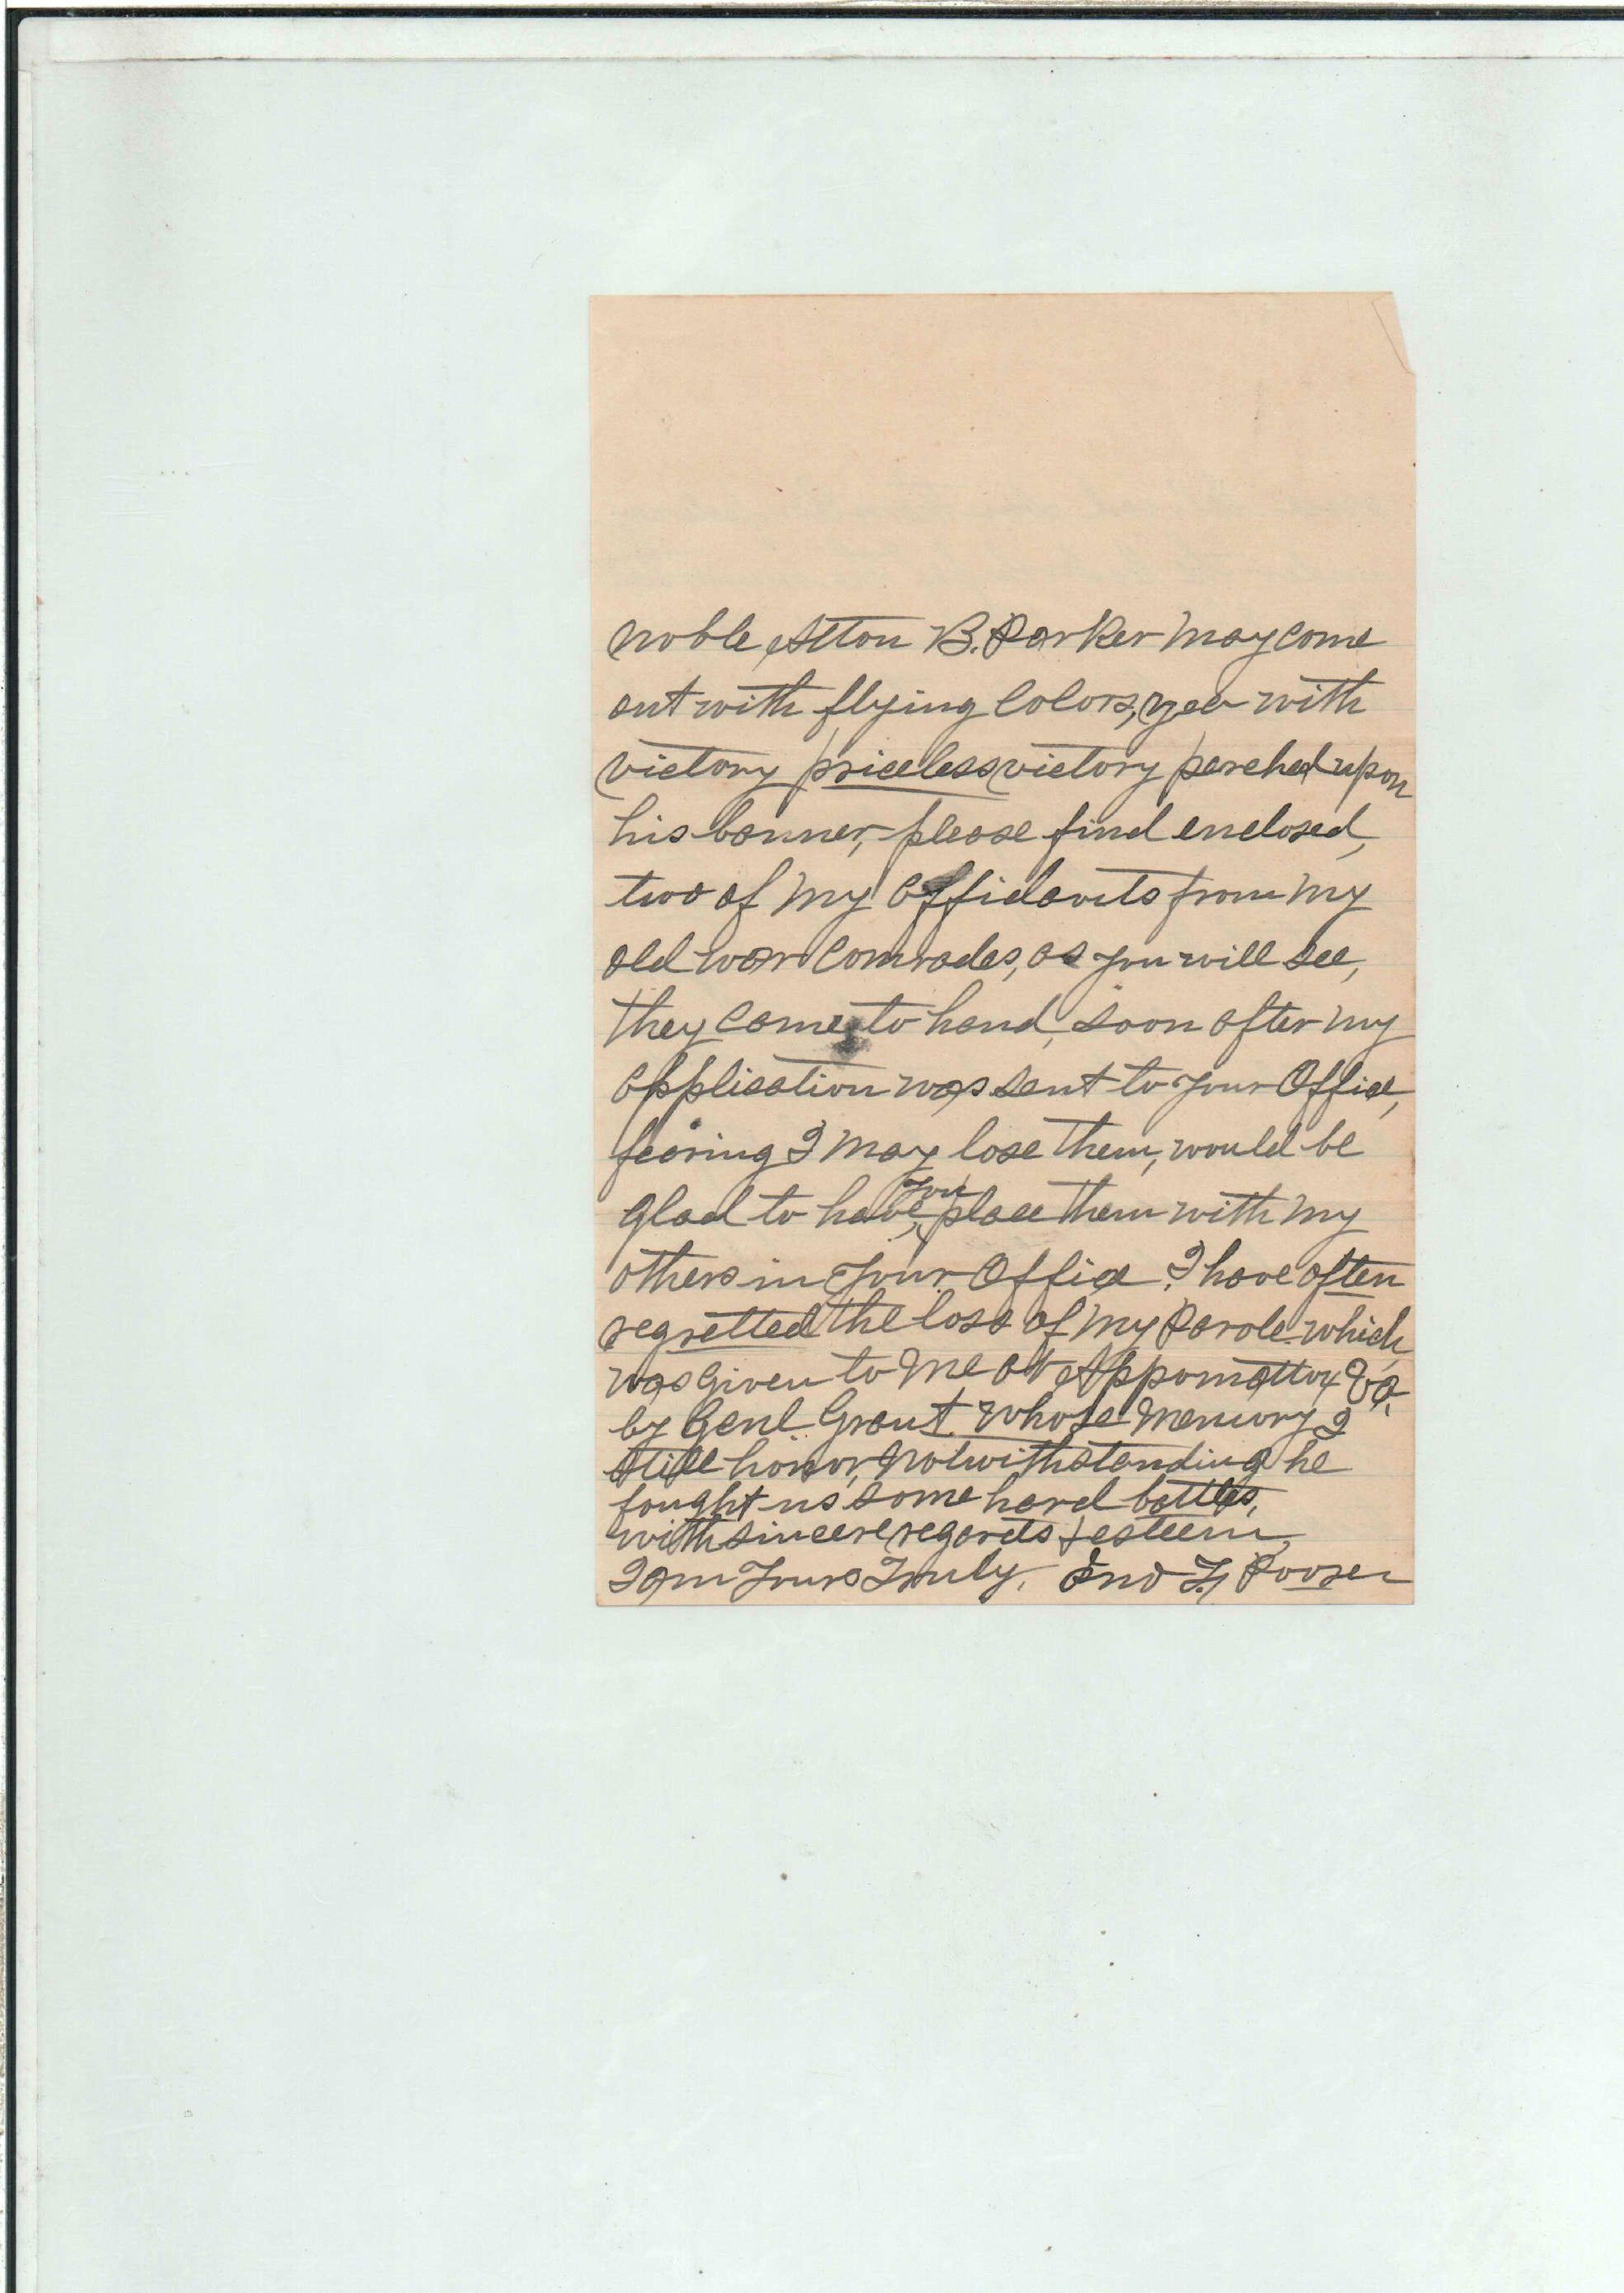 noble Alton B. Parker may come
out with flying Colors, yea with
victory priceless victory perched upon
his banner, please find enclosed,
two of my affidavits from my
old war Comrades, as you will see,
they came to hand, soon after my
application was sent to your Office,
fearing I may lose them, would be
glad to have you place them with my
others in your Office. I have often
regretted the loss of my Parole which
was given to me at Appomattox Va.
by Genl Grant whose memory I
still honor, notwithstanding he
fought us some hard battles,
with sincere regards & esteem,
I am Yours Truly, Jno F. Pooser